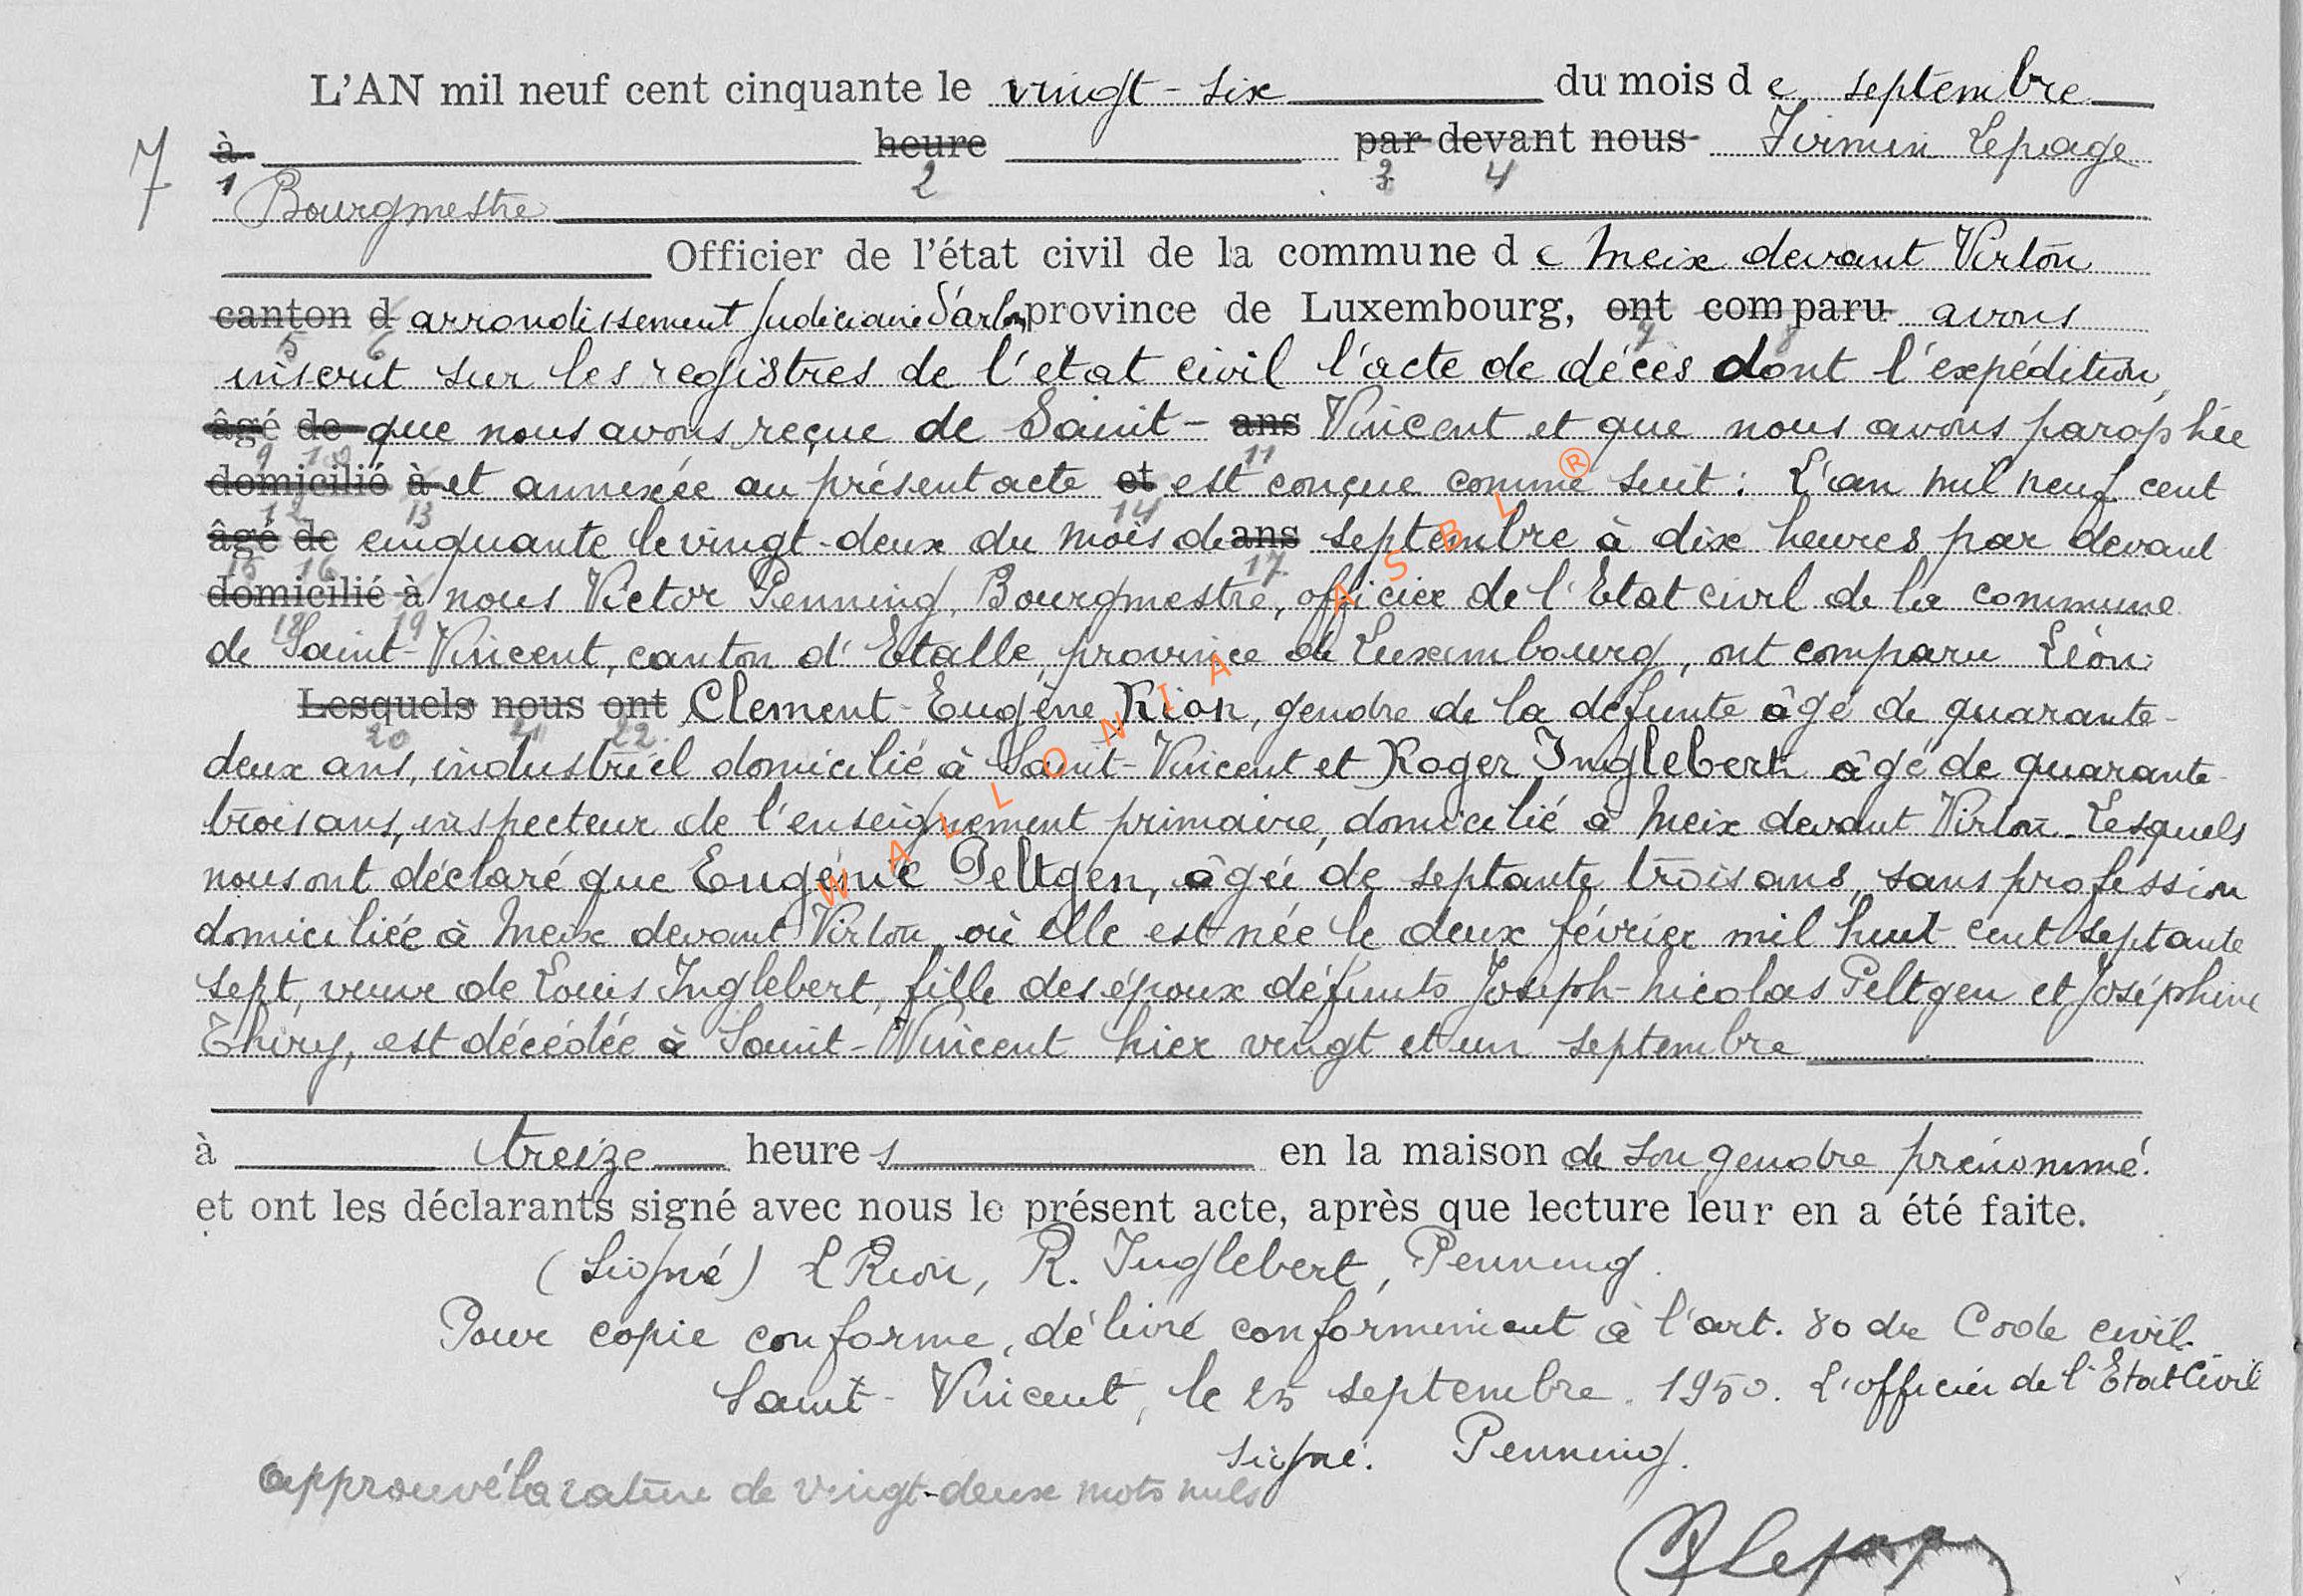 L'AN mil neuf cent cinquante le vingt-six du mois de septembre
7 à heure par devant nous Firmin Lepage
1 2 3 4
Bourgmestre
Officier de l'état civil de la commune de Meix devant Virton
canton d arrondissement judiciaire d'Arlon province de Luxembourg, ont comparu avons
5 6 7 8
inscrit sur les registres de l'état civil l'acte de décès dont l'expédition,
âgé de que nous avons reçue de Saint- ans Vincent et que nous avons paraphée
9 10 11
domicilié à et annexée au présent acte et est conçue comme suit : L'an mil neuf cent
12 13 14
âgé de cinquante le vingt-deux du mois de ans septembre à dix heures par devant
15 16 17
domicilié à nous Victor Penning, Bourgmestre, officier de l'Etat civil de la commune
18 19
de Saint-Vincent, canton d'Etalle, province de Luxembourg, ont comparu Léon
Lesquels nous ont Clement-Eugène Rion, gendre de la défunte âgé de quarante-
20 21 22
deux ans, industriel domicilié à Saint-Vincent et Roger Inglebert âgé de quarante-
trois ans, inspecteur de l'enseignement primaire, domicilié à Meix devant Virton. Lesquels
nous ont déclaré que Eugénie Peltgen, âgée de septante trois ans, sans profession
domiciliée à Meix devant Virton, où elle est née le deux février mil huit cent septante
sept, veuve de Louis Inglebert, fille des époux défunts Joseph-Nicolas Peltgen et Joséphine
Thiry, est décédée à Saint-Vincent hier vingt et un septembre
à treize heures en la maison de son gendre prénommé.
et ont les déclarants signé avec nous le présent acte, après que lecture leur en a été faite.
(Signé) L Rion, R. Inglebert, Penning.
Pour copie conforme, délivré conformément à l'art. 80 du Code civil.
Saint-Vincent, le 25 septembre 1950. L'officier de l'Etat Civil
signé: Penning.
approuvé la rature de vingt-deux mots nuls
WALLONIA ASBL ®